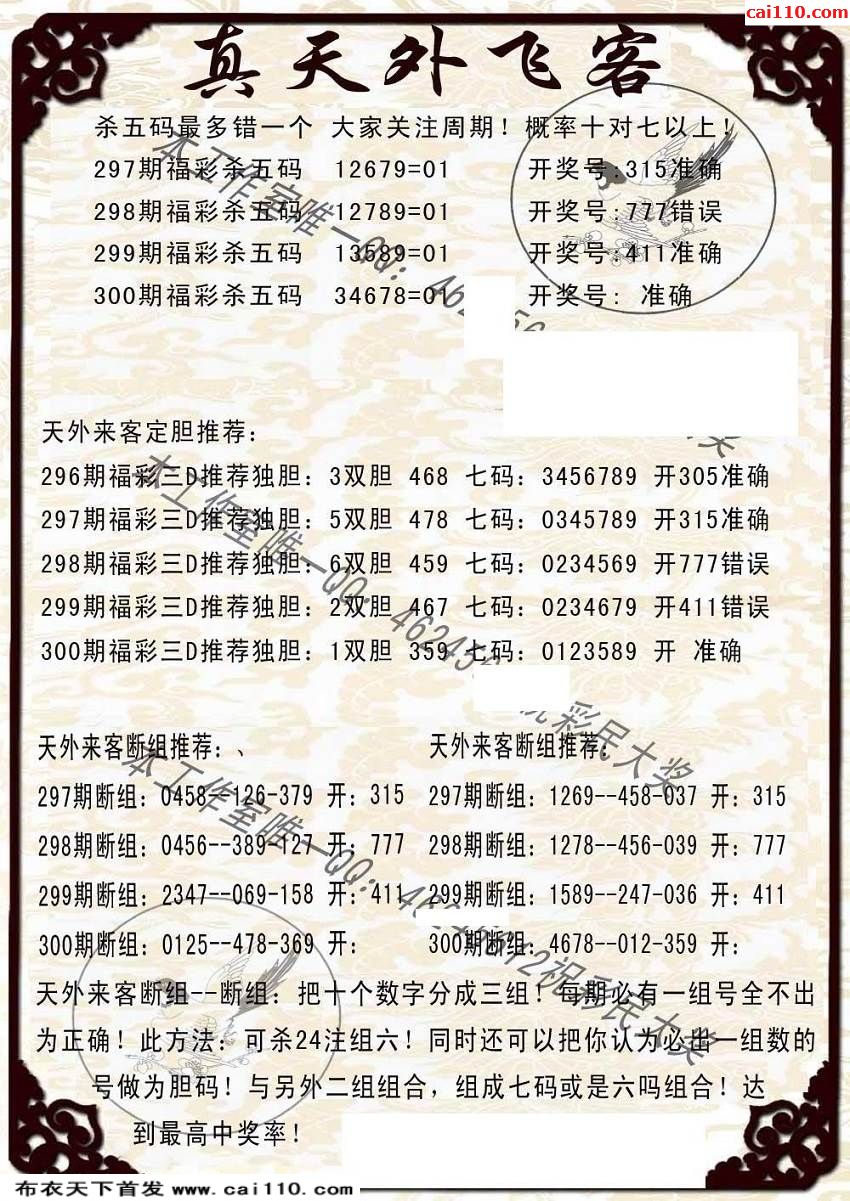 cai110.com
真天外飞客
杀五码最多错一个 大家关注周期！概率十对七以上！
297期福彩杀五码 12679=01 开奖号:315准确
298期福彩杀五码 12789=01 开奖号:777错误
299期福彩杀五码 13589=01 开奖号:411准确
300期福彩杀五码 34678=01 开奖号: 准确
天外来客定胆推荐：
296期福彩三D推荐独胆：3双胆 468 七码：3456789 开305准确
297期福彩三D推荐独胆：5双胆 478 七码：0345789 开315准确
298期福彩三D推荐独胆：6双胆 459 七码：0234569 开777错误
299期福彩三D推荐独胆：2双胆 467 七码：0234679 开411错误
300期福彩三D推荐独胆：1双胆 359 七码：0123589 开 准确
天外来客断组推荐：、 天外来客断组推荐：
297期断组：0458--126-379 开：315 297期断组：1269--458-037 开：315
298期断组：0456--389-127 开：777 298期断组：1278--456-039 开：777
299期断组：2347--069-158 开：411 299期断组：1589--247-036 开：411
300期断组：0125--478-369 开： 300期断组：4678--012-359 开：
天外来客断组--断组：把十个数字分成三组！每期必有一组号全不出
为正确！此方法：可杀24注组六！同时还可以把你认为必出一组数的
号做为胆码！与另外二组组合，组成七码或是六吗组合！达
到最高中奖率！
本工作室唯一QQ：462456
本工作室唯一QQ：462456 祝彩民大奖
本工作室唯一QQ：祝彩民大奖
布衣天下首发 www.cai110.com